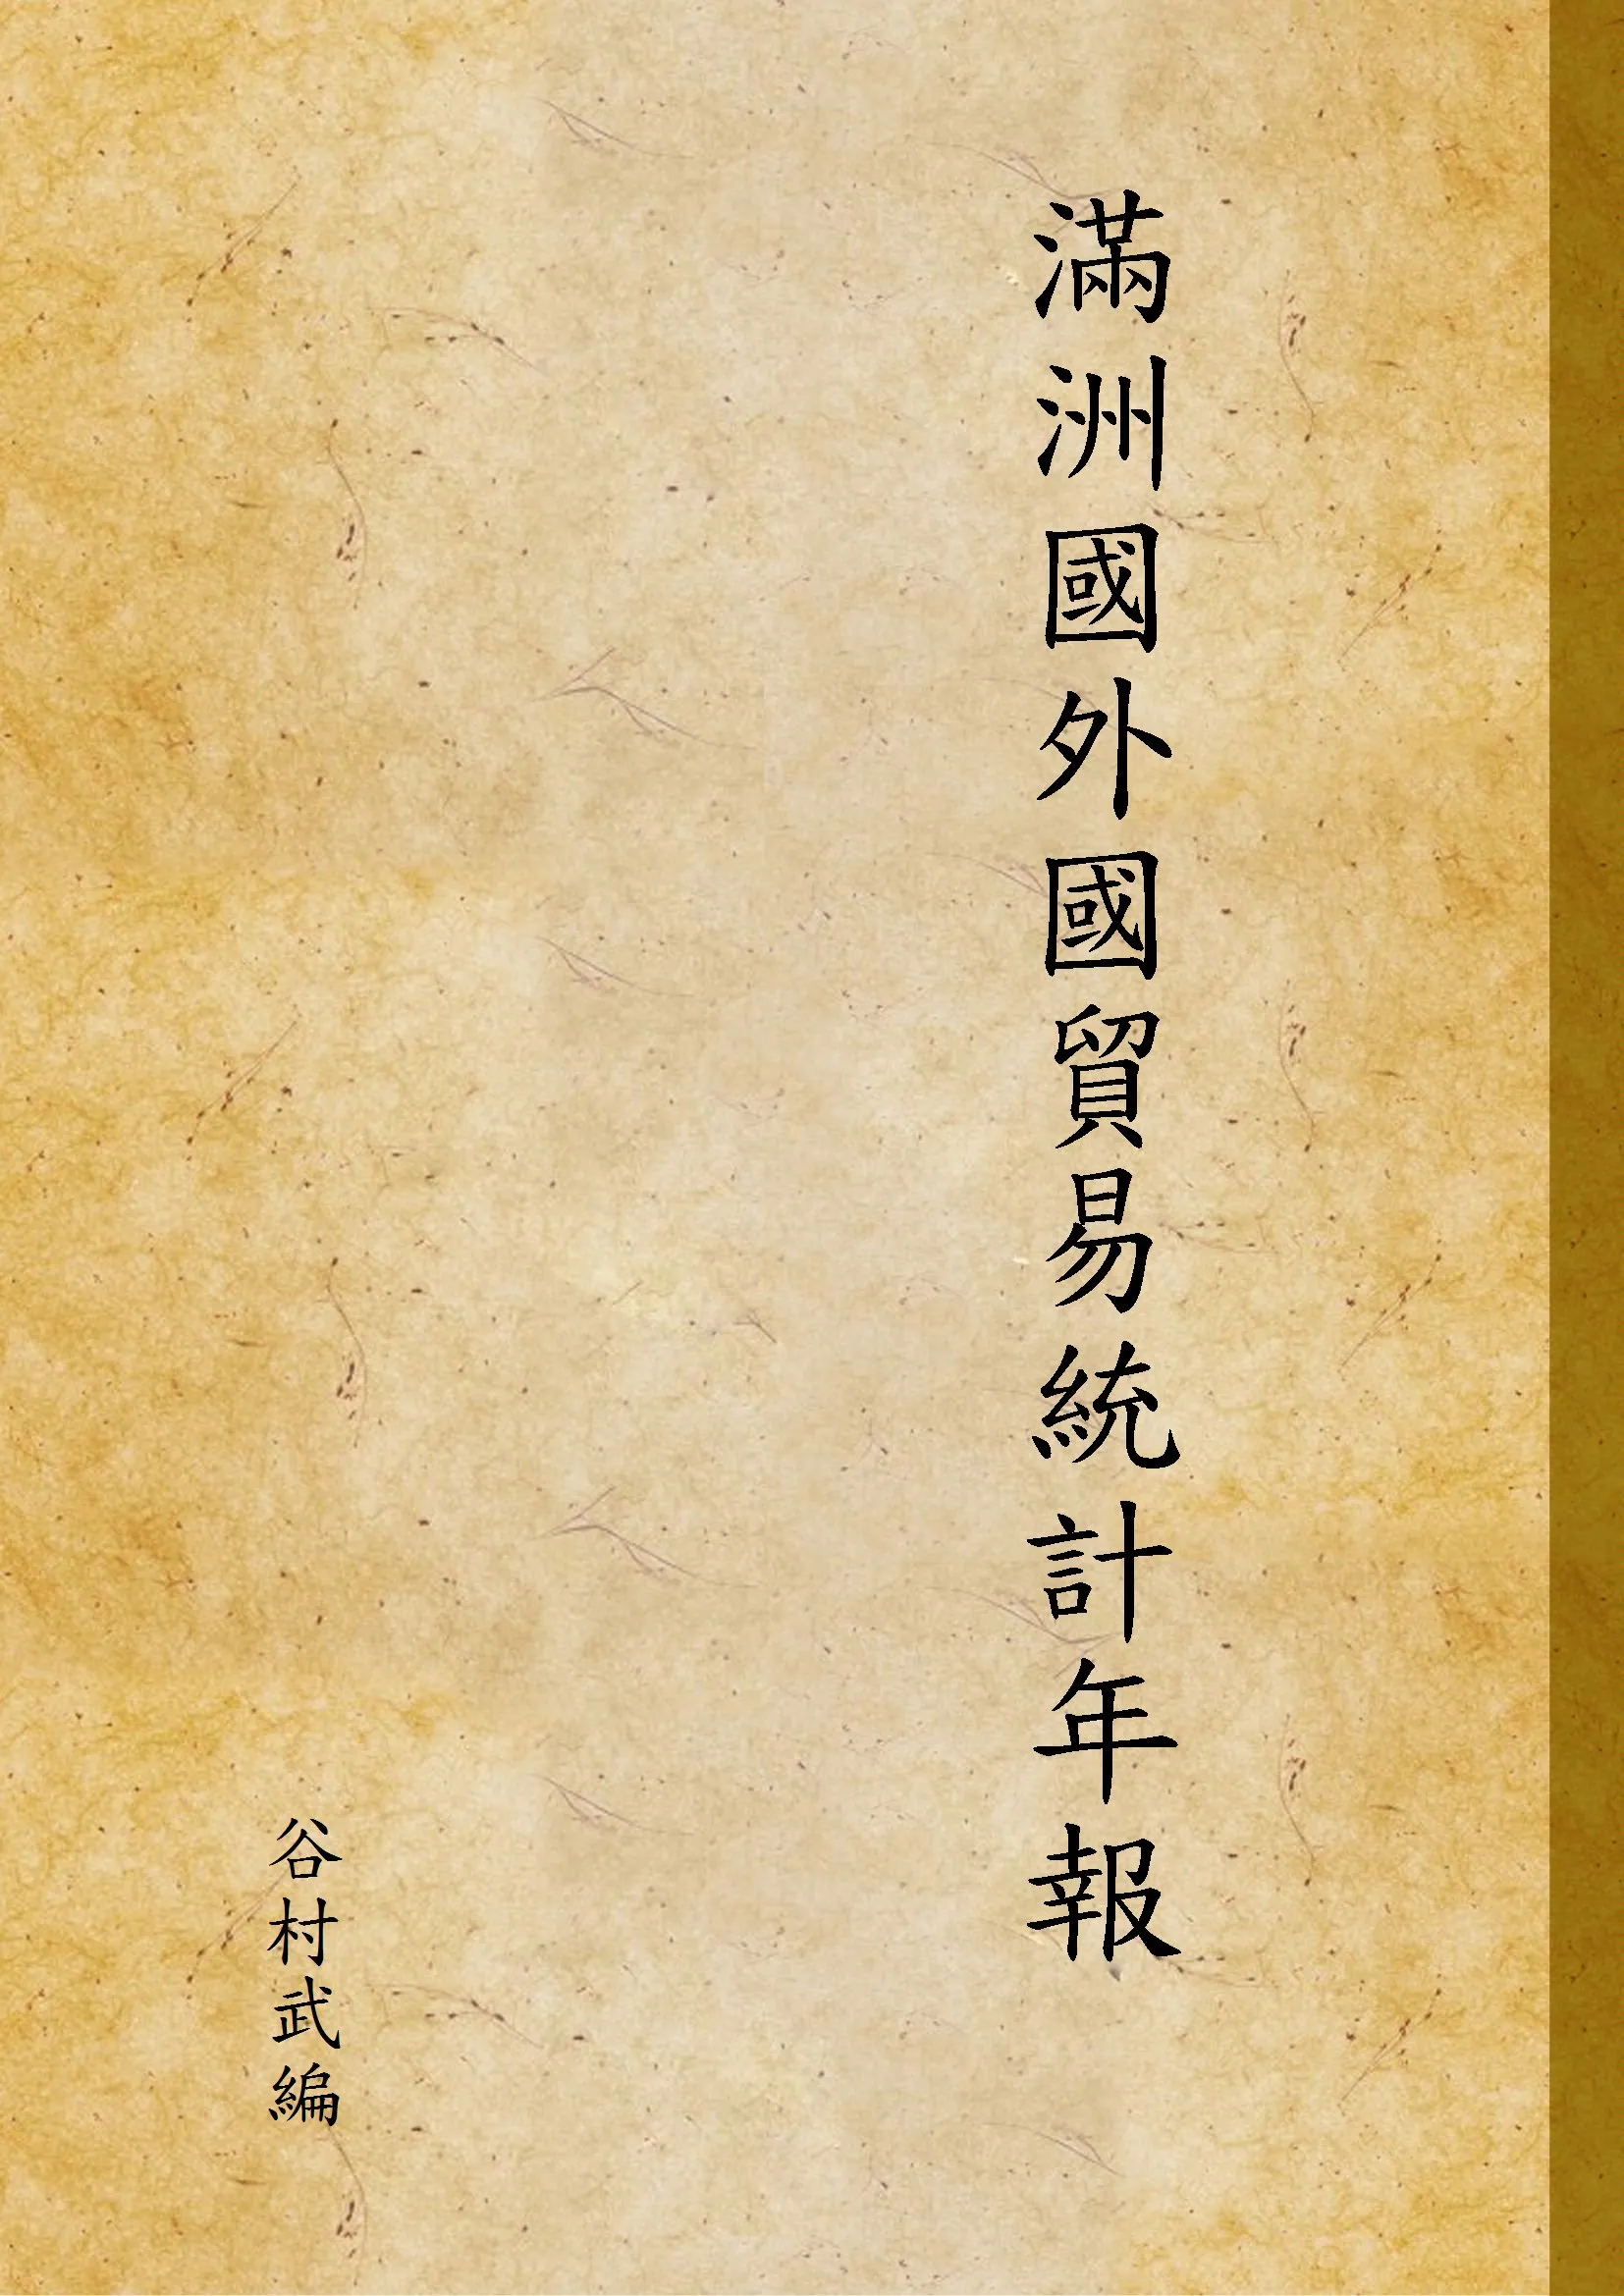 滿洲國外國貿易統計年報
谷村武編